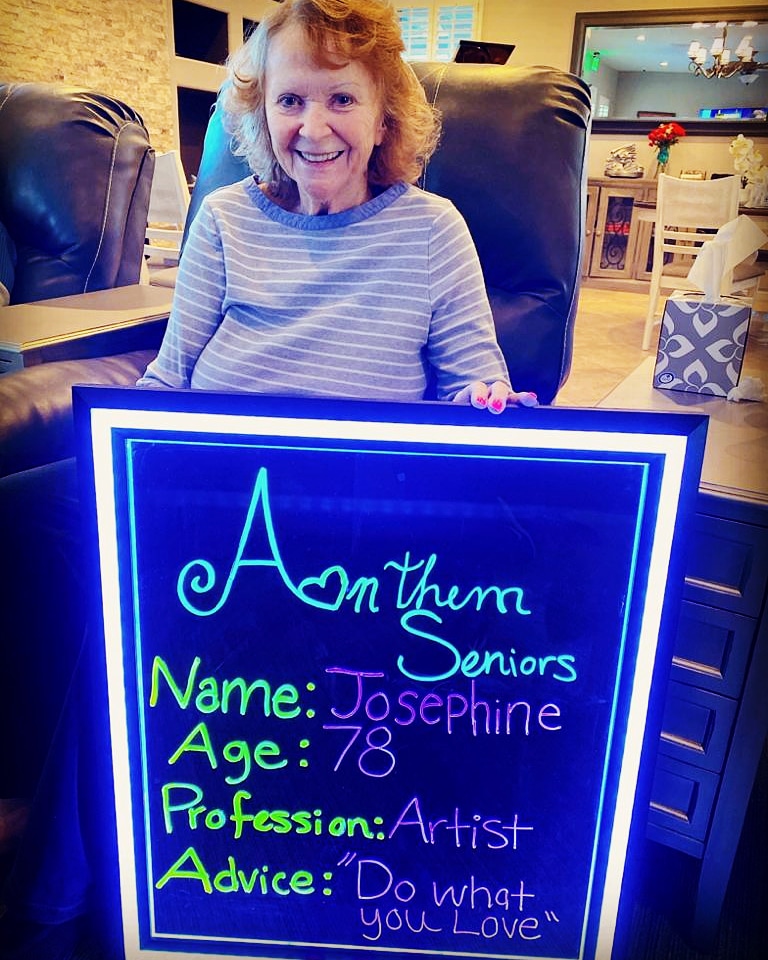 Anthem
Seniors
Name: Josephine
Age: 78
Profession: Artist
Advice: "Do what
you Love"